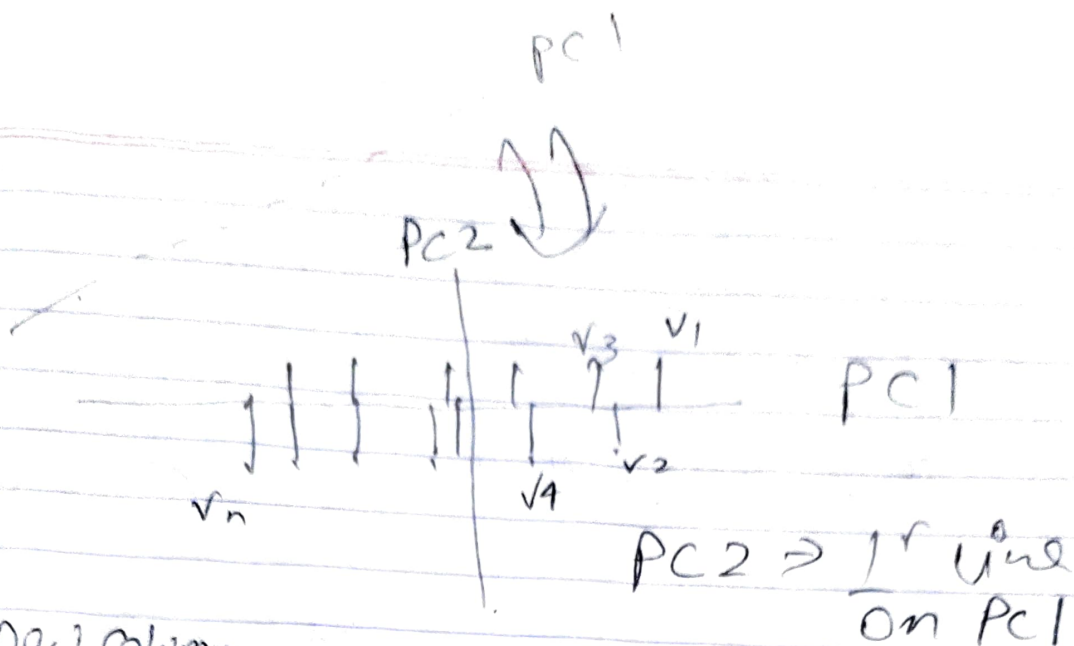 PC1
PC2
V3 V1
PC1
V2
V4
Vn
PC2 => ⊥r line
on PC1